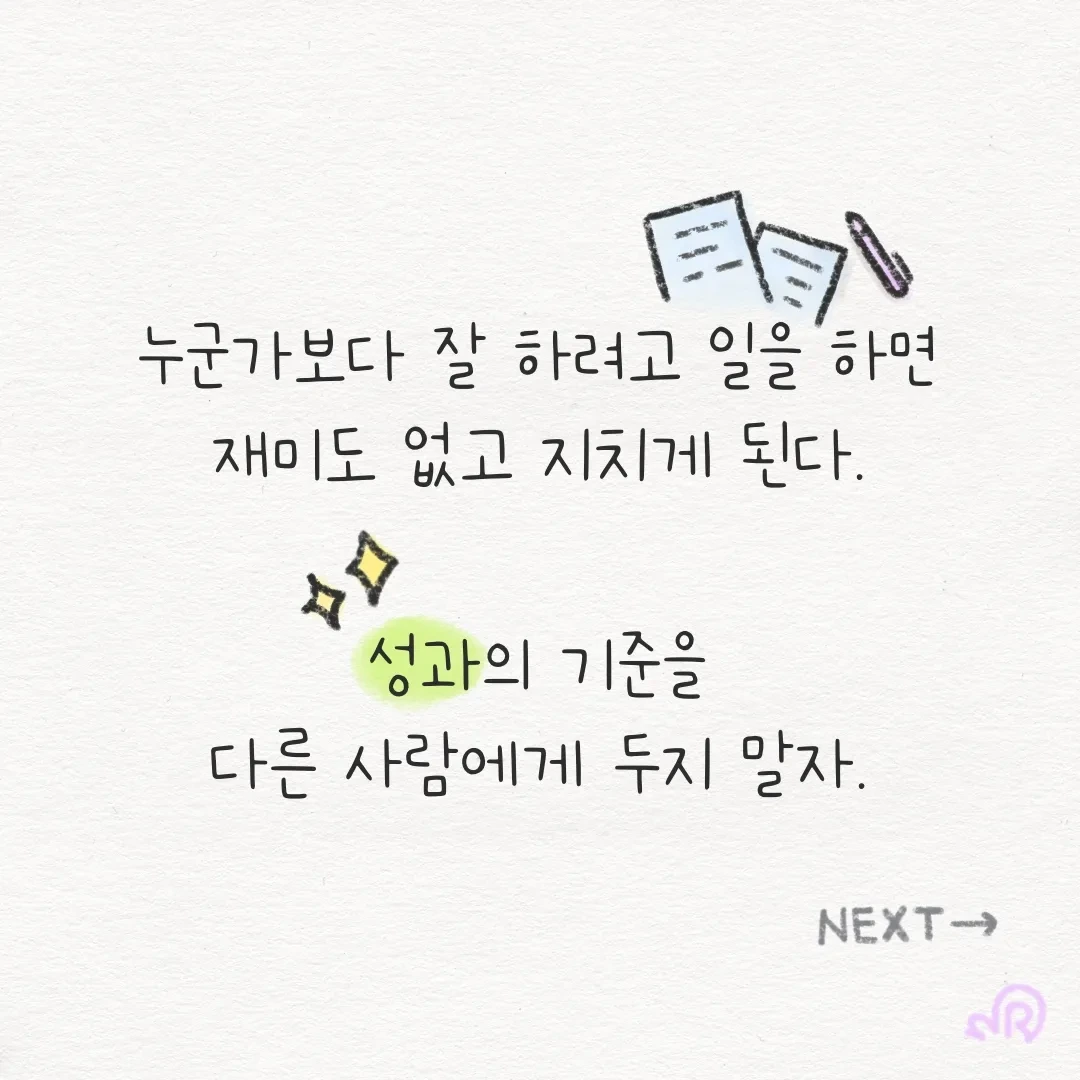 누군가보다 잘 하려고 일을 하면
재미도 없고 지치게 된다.
성과의 기준을
다른 사람에게 두지 말자.
NEXT→